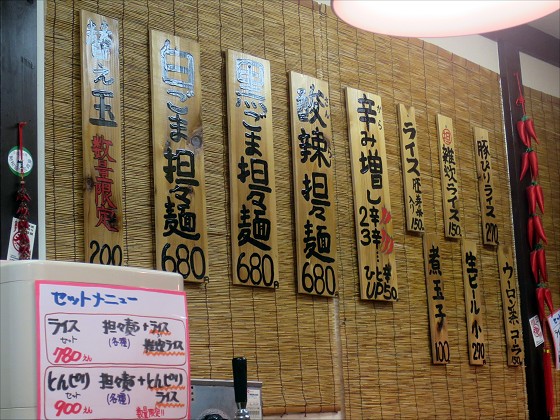 替え玉 数量限定 200
白ごま担々麺 680
黒ごま担々麺 680.
酸辣担々麺 680
辛み増し
から
2辛
3辛
ひと辛
UP50
ライス 150
雑炊ライス 150
豚ぴりライス 200
煮玉子 100
生ビール小 290
ウーロン茶
コーラ 150
セットメニュー
ライス
セット
780えん
担々麺+ライス
(各種)
雑炊ライス
とんピリ
セット
900えん
担々麺+とんピリ
(各種)
ライス
数量限定!!